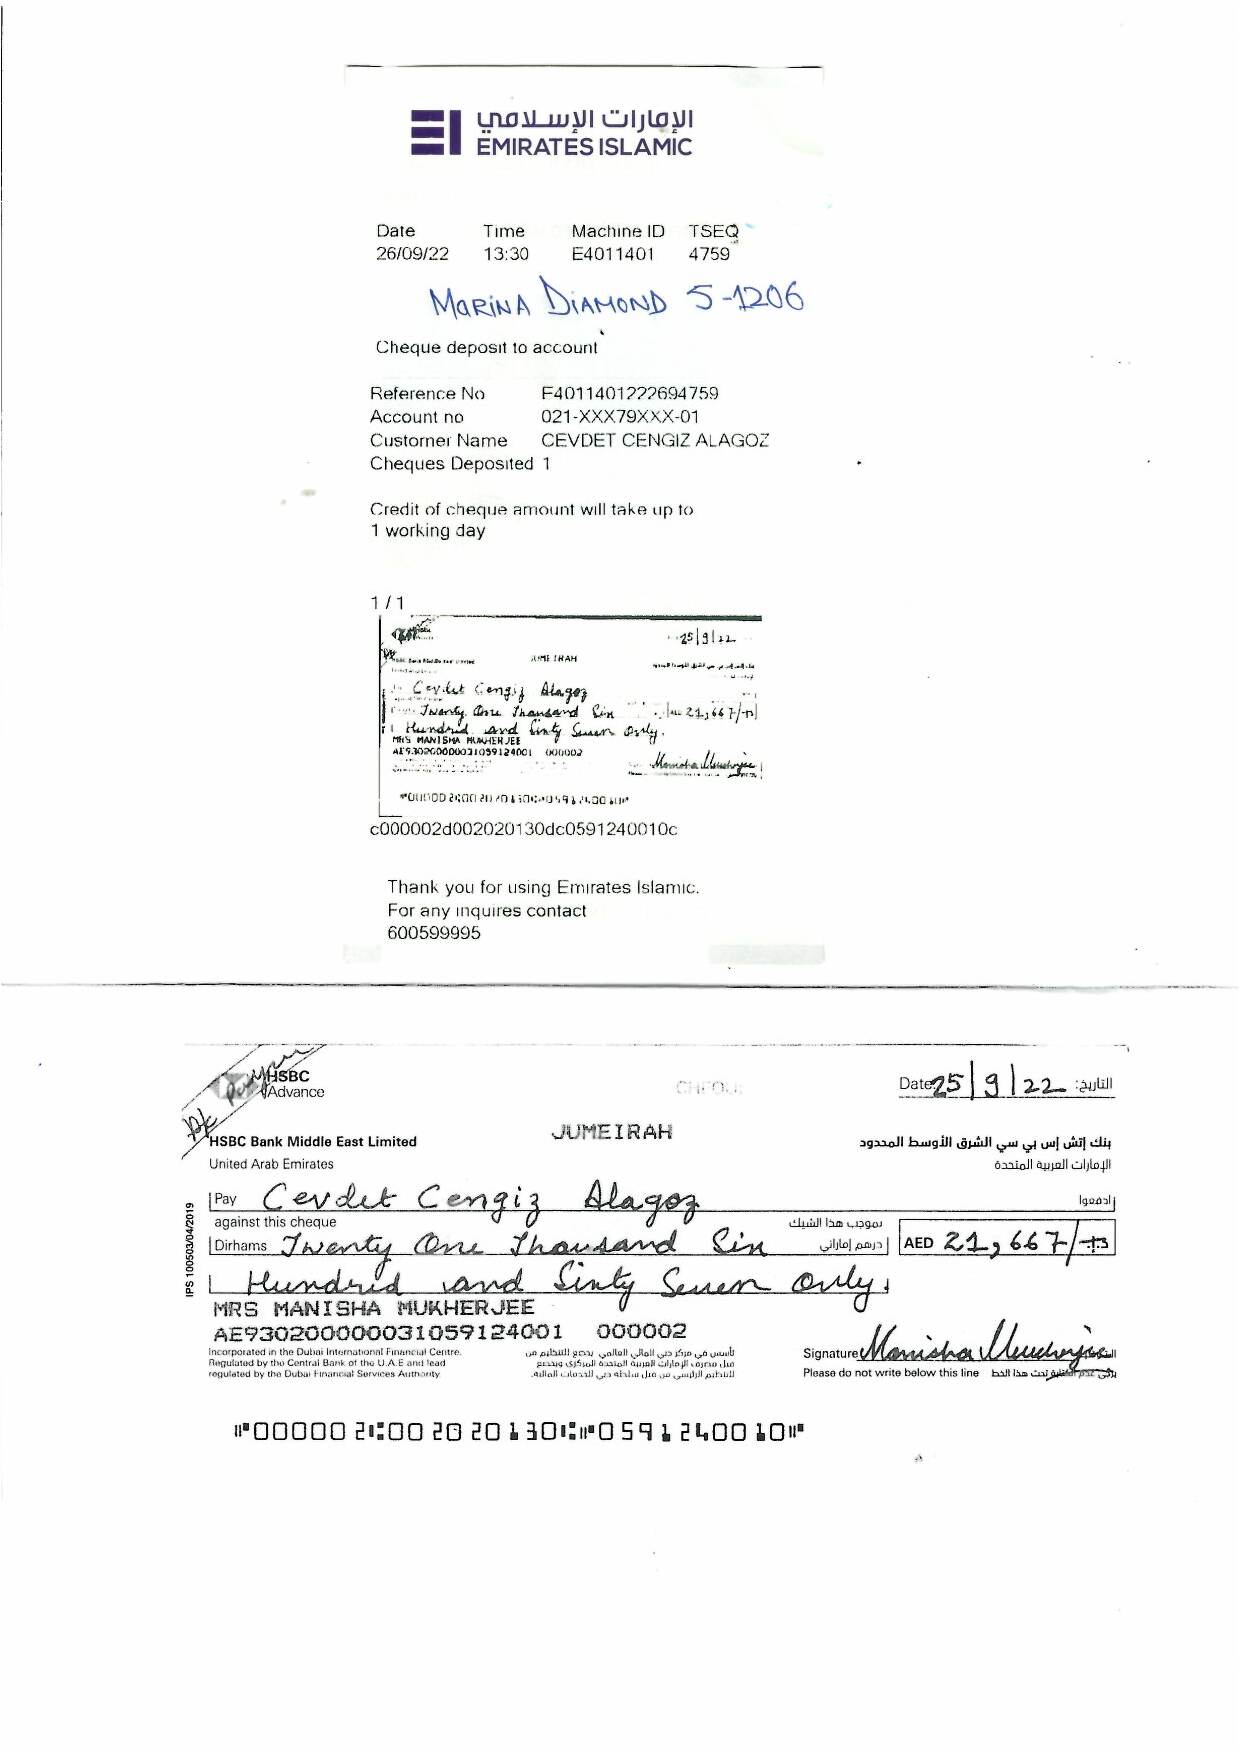 الإمارات الإسلامي
EMIRATES ISLAMIC
Date Time Machine ID TSEQ
26/09/22 13:30 E4011401 4759
MARINA DIAMOND 5-1206
Cheque deposit to account
Reference No E4011401222694759
Account no 021-XXX79XXX-01
Customer Name CEVDET CENGIZ ALAGOZ
Cheques Deposited 1
Credit of cheque amount will take up to
1 working day
1 / 1
25/9/22
JUMEIRAH
Cevdet Cengiz Alagoz
Twenty One Thousand Six 21,667/-
Hundred and Sixty Seven Only.
MRS MANISHA MUKHERJEE
AE930200000031059124001 000002
c000002d002020130dc0591240010c
Thank you for using Emirates Islamic.
For any inquires contact
600599995
HSBC
Advance
CHEQUE
Date 25/9/22 التاريخ:
JUMEIRAH
HSBC Bank Middle East Limited بنك إتش إس بي سي الشرق الأوسط المحدود
United Arab Emirates الإمارات العربية المتحدة
Pay Cevdet Cengiz Alagoz ادفعوا
against this cheque بموجب هذا الشيك
Dirhams Twenty One Thousand Six درهم إماراتي AED 21,667/-
Hundred and Sixty Seven Only.
IPS 100503/04/2019
MRS MANISHA MUKHERJEE
AE930200000031059124001 000002
Incorporated in the Dubai International Financial Centre.
Regulated by the Central Bank of the U.A.E and lead
regulated by the Dubai Financial Services Authority.
Signature Manisha Mukherjee
Please do not write below this line يرجى عدم الكتابة تحت هذا الخط
⑈000002⑆002020130⑆⑈0591240010⑈